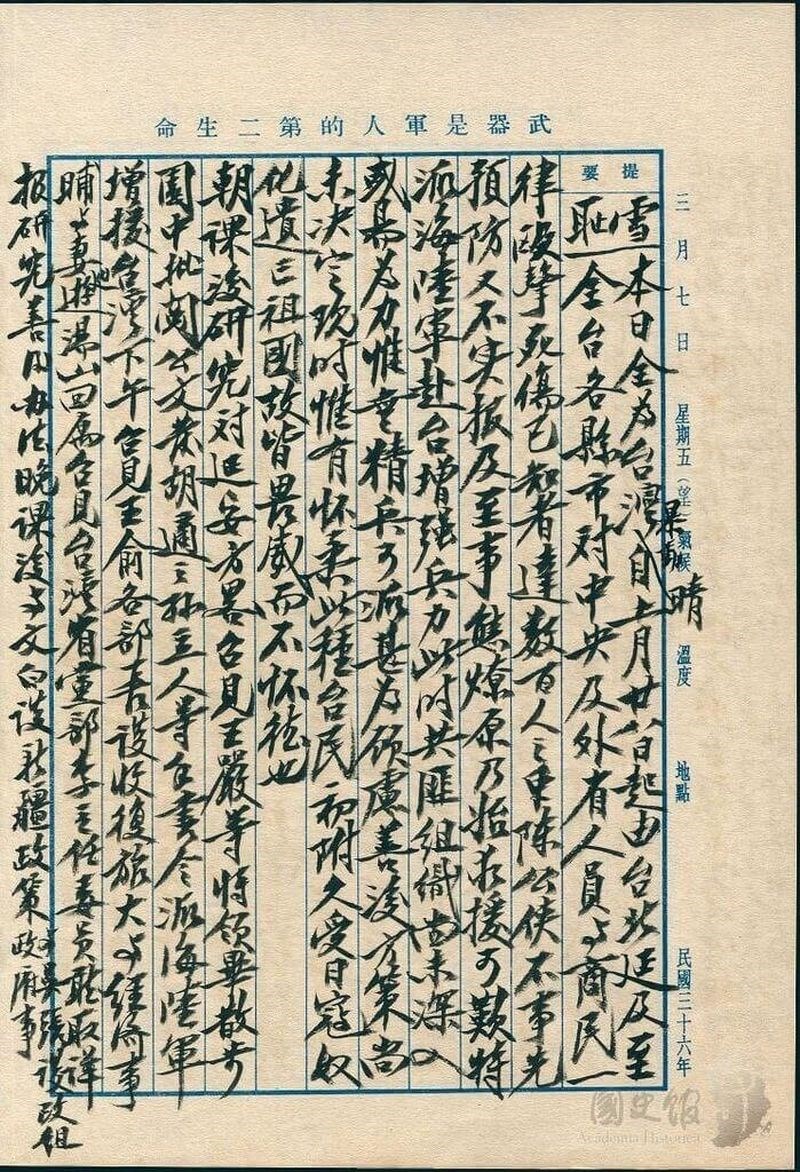 命生二第的人軍是器武
三月七日 星期五(望) 氣候 晴 溫度 地點 民國三十六年
提要
雪恥 本日全為台灣暴動自上月廿八日起由台北延及至
全台各縣市對中央及外省人員与商民一
律毆擊死傷已知者達數百人之衆陳公俠不事先
預防又不實報及至事態燎原乃始求援可歎特
派海陸軍赴台增強兵力此時共匪組織尚未深入
或易為力惟無精兵可派甚為顧慮善後方策尚
未決定現時惟有懷柔此種台民初附久受日寇奴
化遺忘祖國故皆畏威而不懷德也
朝課後研究對延安方畧召見王嚴等將領畢散步
園中批閱公文發胡適之孫立人等手書令派海陸軍
增援台灣下午召見王俞各部長談收復旅大与經濟事
晡与妻車遊湯山回寓召見台灣省黨部李主任委員聽取詳
報研究善後辦法晚課後与文白談新疆政策与岳張談改組政府事
國史館
Academia Historica